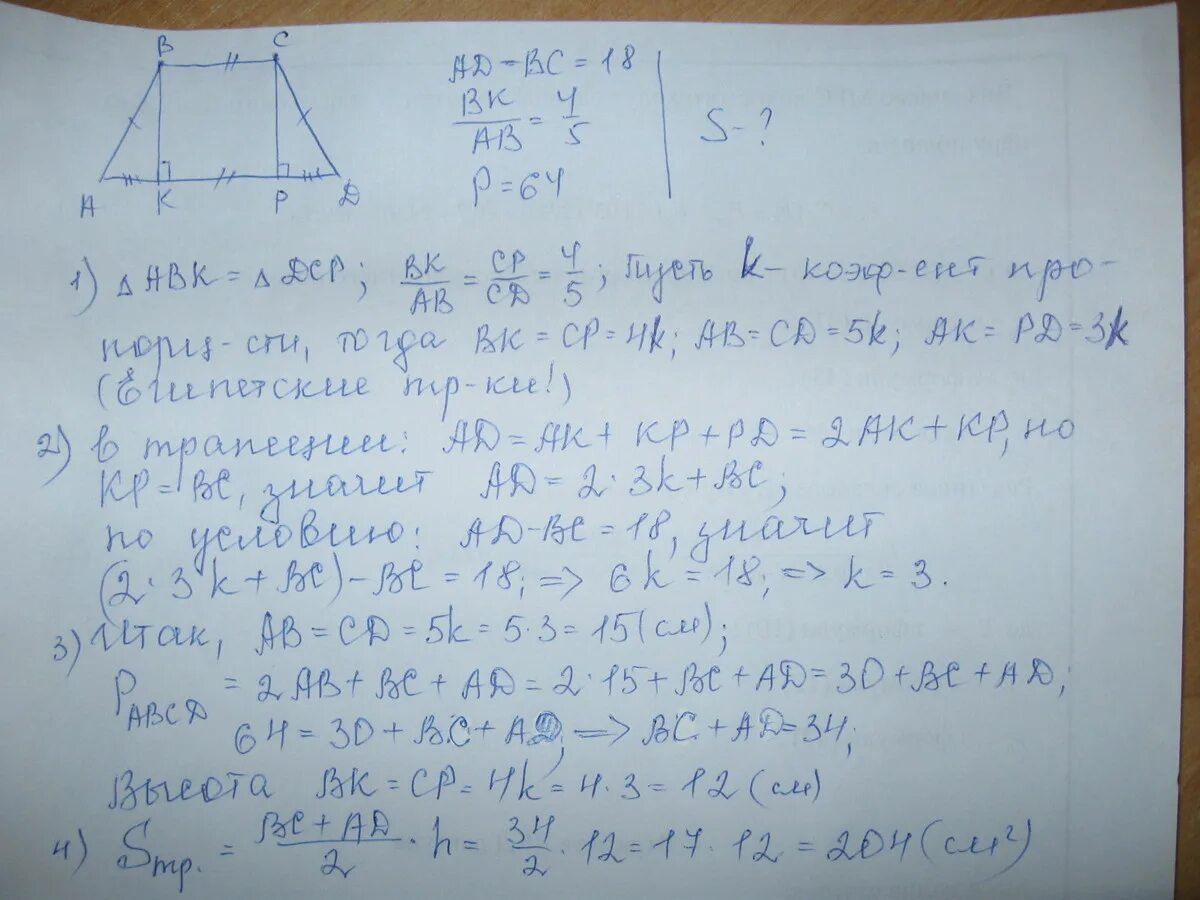 B C
A K P D
AD - BC = 18
BK/AB = 4/5
P = 64
S - ?
1) △ABK = △DCP; BK/AB = CP/CD = 4/5; Пусть k - коэф-ент про-
порц-сти, тогда BK = CP = 4k; AB = CD = 5k; AK = PD = 3k
(Египетские тр-ки!)
2) в трапеции: AD = AK + KP + PD = 2AK + KP, но
KP = BC, значит AD = 2·3k + BC;
по условию: AD - BC = 18, значит
(2·3k + BC) - BC = 18; => 6k = 18; => k = 3.
3) Итак, AB = CD = 5k = 5·3 = 15 (см);
P_ABCD = 2AB + BC + AD = 2·15 + BC + AD = 30 + BC + AD;
64 = 30 + BC + AD; => BC + AD = 34;
Высота BK = CP = 4k = 4·3 = 12 (см)
4) Sтр. = (BC + AD)/2 · h = 34/2 · 12 = 17 · 12 = 204 (см²)